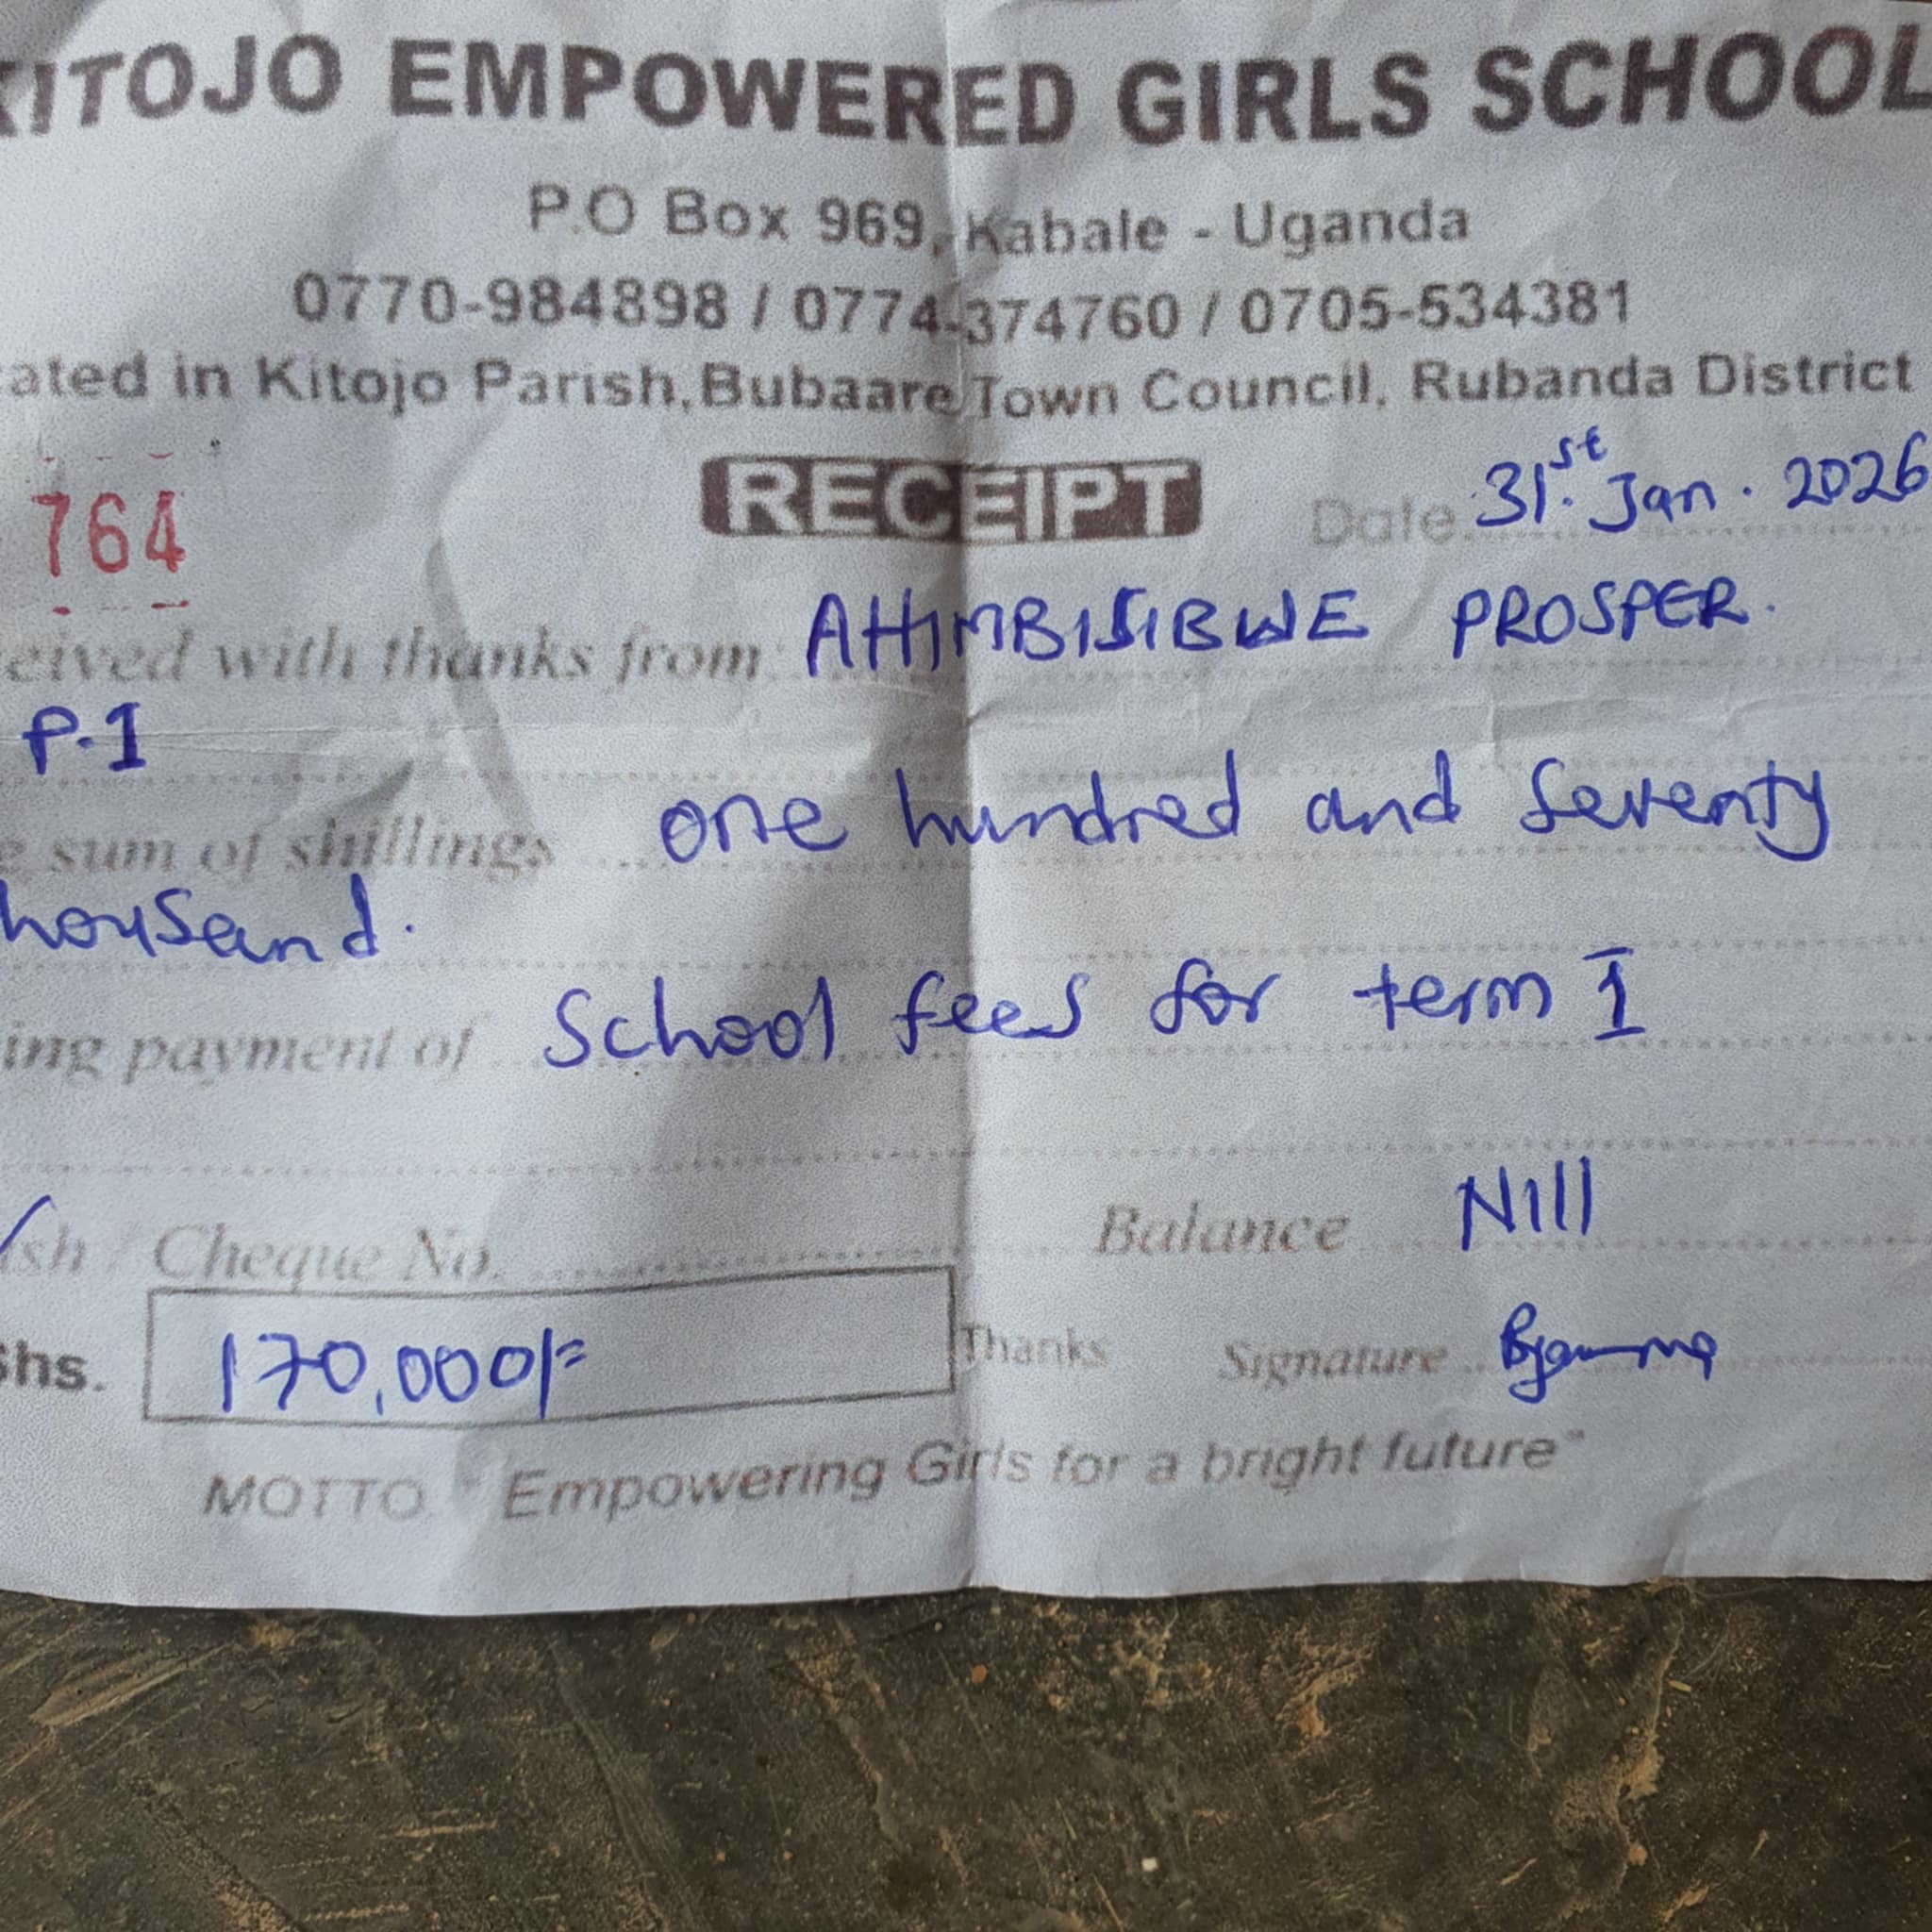 KITOJO EMPOWERED GIRLS SCHOOL
P.O Box 969, Kabale - Uganda
0770-984898 / 0774-374760 / 0705-534381
ated in Kitojo Parish, Bubaare Town Council, Rubanda District
764 RECEIPT Date 31st. Jan. 2026
eived with thanks from: AHIMBISIBWE PROSPER.
P.1
e sum of shillings one hundred and seventy
housand.
ing payment of School fees for term I
sh / Cheque No. Balance Nill
Shs. 170,000/= Thanks Signature
MOTTO. "Empowering Girls for a bright future"